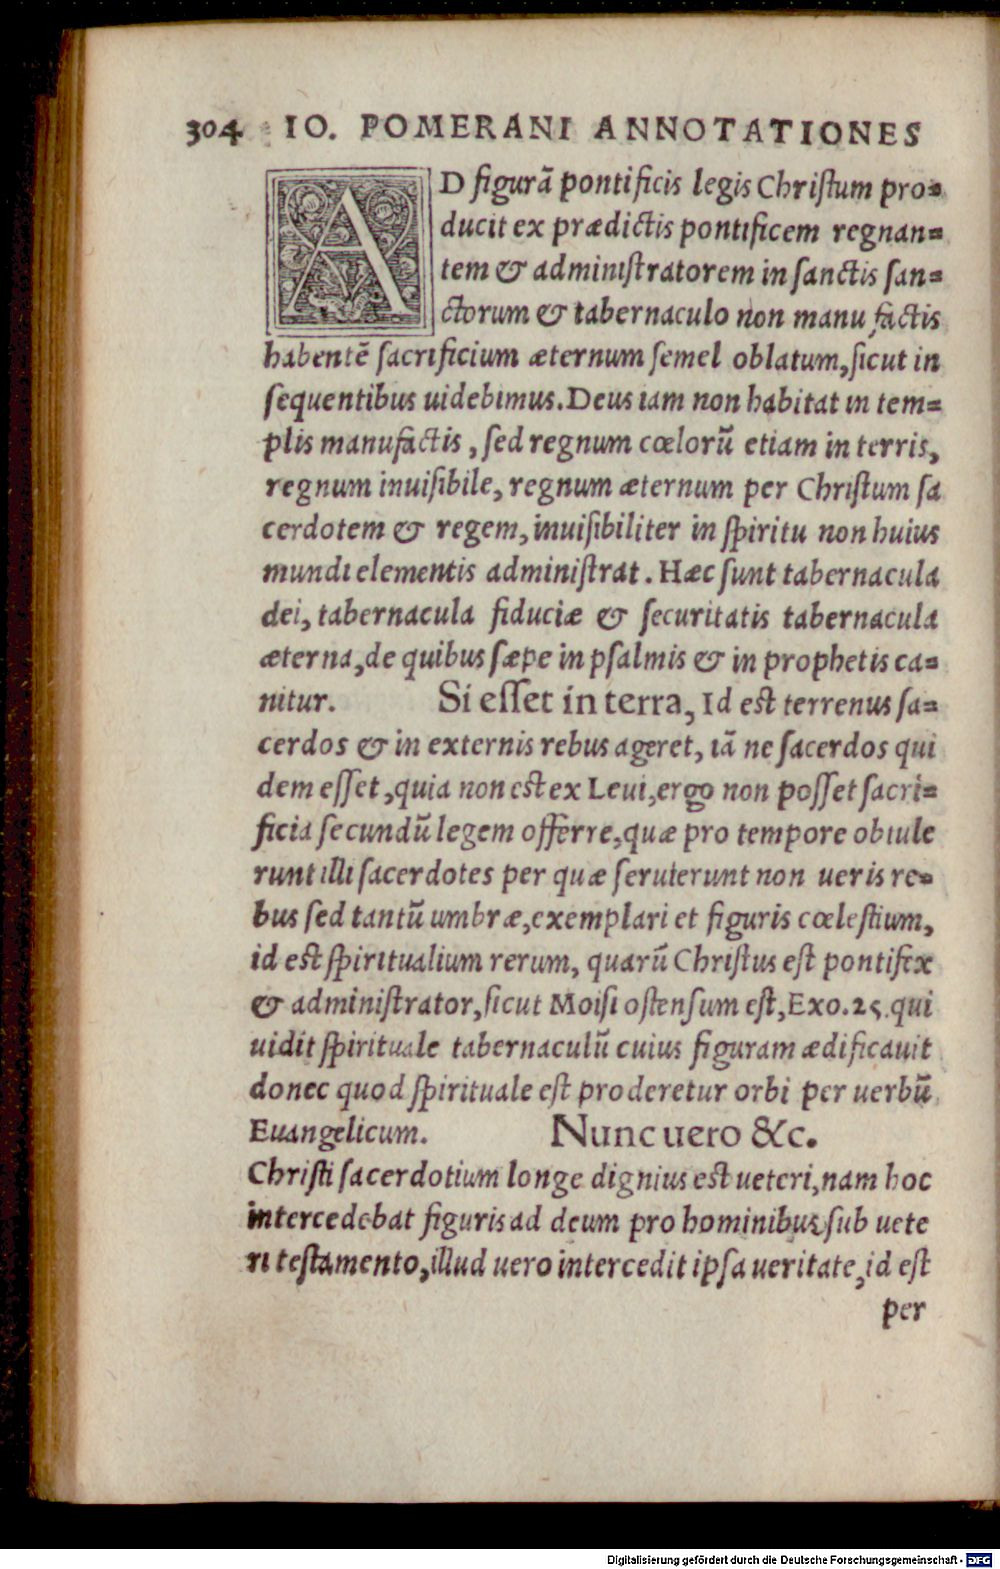 304 IO. POMERANI ANNOTATIONES
AD figurā pontificis legis Christum pro=
ducit ex prædictis pontificem regnan=
tem & administratorem in sanctis san=
ctorum & tabernaculo non manu factis
habentē sacrificium æternum semel oblatum, sicut in
sequentibus uidebimus. Deus iam non habitat in tem=
plis manufactis, sed regnum cœlorū etiam in terris,
regnum inuisibile, regnum æternum per Christum sa
cerdotem & regem, inuisibiliter in spiritu non huius
mundi elementis administrat. Hæc sunt tabernacula
dei, tabernacula fiduciæ & securitatis tabernacula
æterna, de quibus sæpe in psalmis & in prophetis ca=
nitur. Si esset in terra, Id est terrenus sa=
cerdos & in externis rebus ageret, iā ne sacerdos qui
dem esset, quia non est ex Leui, ergo non posset sacri=
ficia secundū legem offerre, quæ pro tempore obtule
runt illi sacerdotes per quæ seruierunt non ueris re=
bus sed tantū umbræ, exemplari et figuris cœlestium,
id est spiritualium rerum, quarū Christus est pontifex
& administrator, sicut Moisi ostensum est, Exo. 25. qui
uidit spirituale tabernaculū cuius figuram ædificauit
donec quod spirituale est proderetur orbi per uerbū
Euangelicum. Nunc uero &c.
Christi sacerdotium longe dignius est ueteri, nam hoc
intercedebat figuris ad deum pro hominibus sub uete
ri testamento, illud uero intercedit ipsa ueritate, id est
per
Digitalisierung gefördert durch die Deutsche Forschungsgemeinschaft - DFG